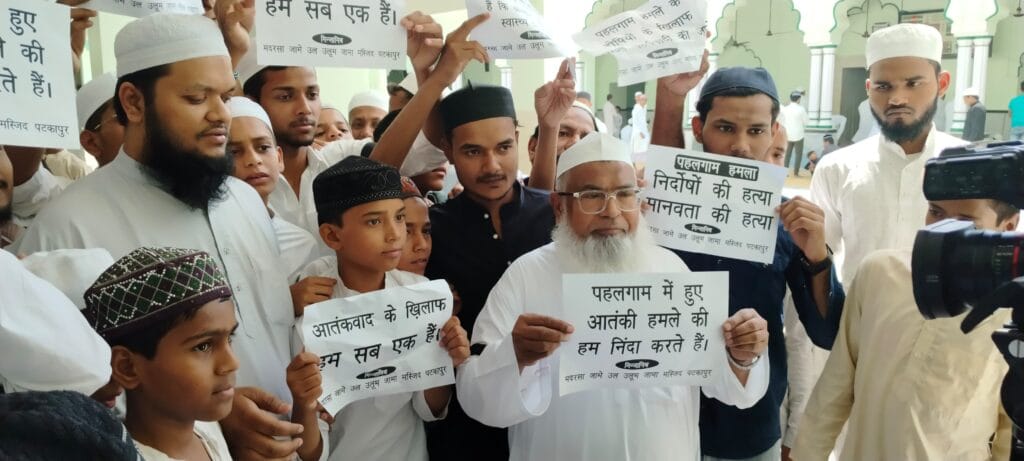 हुए
की
ते हैं।
मस्जिद पटकापुर
हम सब एक हैं.
मदरसा जामे उल उलूम जामा मस्जिद पटकापुर
पहलगाम हमले के
के खिलाफ
पहलगाम हमला
निर्दोषों की हत्या
मानवता की हत्या
जामे उल उलूम जामा मस्जिद पटकापुर
आतंकवाद के खि़लाफ
हम सब एक हैं।
जामे उल उलूम जामा मस्जिद पटकापुर
पहलगाम में हुए
आतंकी हमले की
हम निंदा करते हैं।
मदरसा जामे उल उलूम जामा मस्जिद पटकापुर